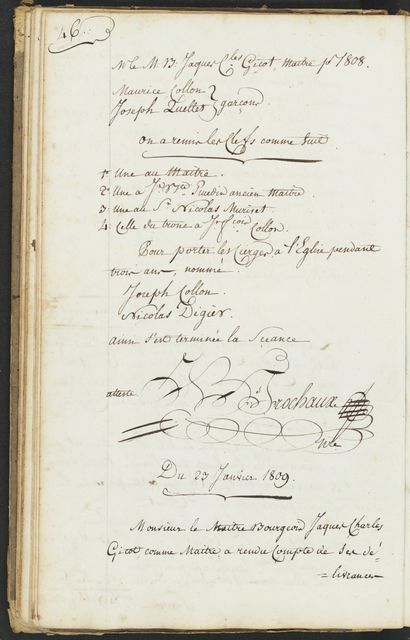 46.
Mr le M. B. Jaques C.les Gicot, Maitre pr 1808.
Maurice Collon
Joseph Quellet } garçons
on a remis les Clefs comme suit
1° Une au Maitre.
2° Une a Jn Bte Ruedin ancien Maitre.
3° une au Sr Nicolas Muriset.
4. Celle du trone a Jn fçois Collon.
Pour porter les Cierges a l'Eglise pendant
trois ans, nommé.
Joseph Collon.
Nicolas Digier.
ainsi s'est terminée la Sceance
atteste
J B Frochaux
Du 23 Janvier 1809.
Monsieur le Maitre Bourgeois Jaques Charles
Gicot comme Maitre a rendu Compte de ses dé-
=livrances